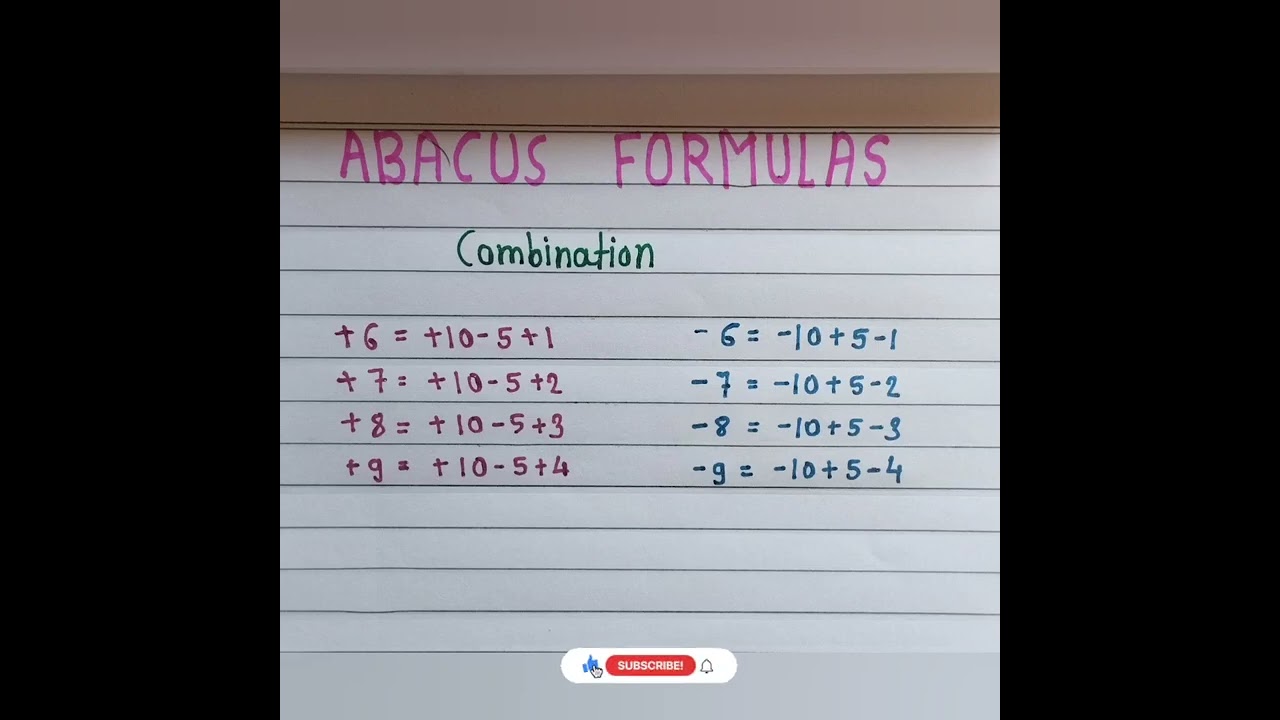 ABACUS FORMULAS
Combination
+6 = +10-5+1 -6 = -10+5-1
+7 = +10-5+2 -7 = -10+5-2
+8 = +10-5+3 -8 = -10+5-3
+9 = +10-5+4 -9 = -10+5-4
SUBSCRIBE!